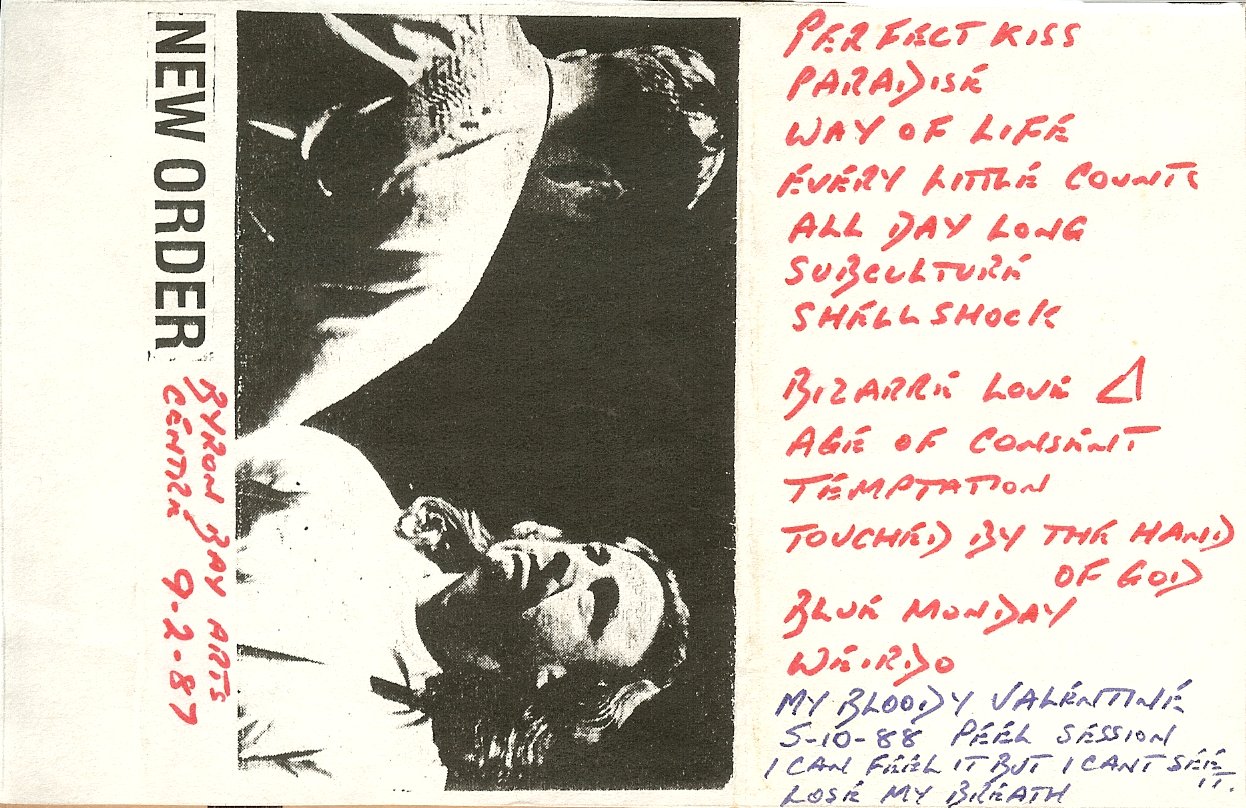 NEW ORDER
BYRON BAY ARTS
CENTER 9-2-87
PERFECT KISS
PARADISE
WAY OF LIFE
EVERY LITTLE COUNTS
ALL DAY LONG
SUBCULTURE
SHELLSHOCK
BIZARRE LOVE △
AGE OF CONSENT
TEMPTATION
TOUCHED BY THE HAND
OF GOD
BLUE MONDAY
WEIRDO
MY BLOODY VALENTINE
5-10-88 PEEL SESSION
I CAN FEEL IT BUT I CANT SEE
IT.
LOSE MY BREATH